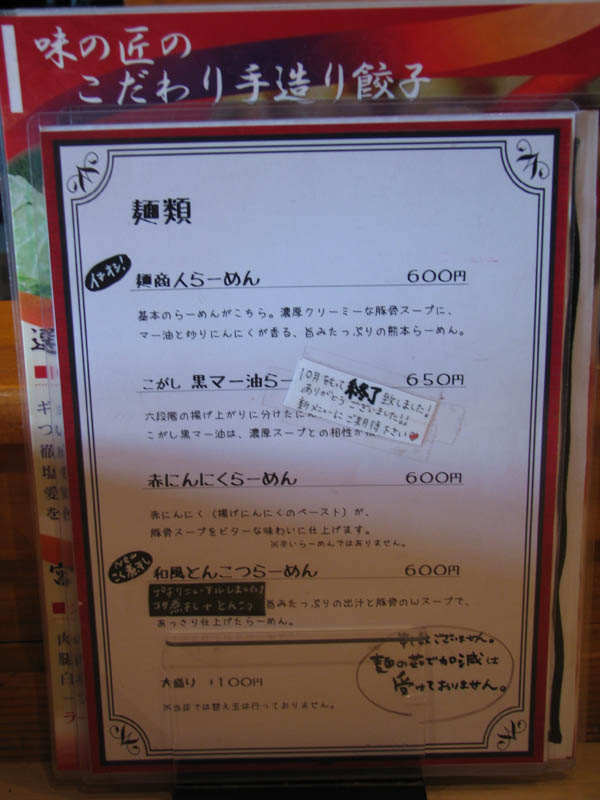 味の匠の
こだわり手造り餃子
麺類
イチオシ!
麺商人らーめん 600円
基本のらーめんがこちら。濃厚クリーミーな豚骨スープに、
マー油と炒りにんにくが香る、旨みたっぷりの熊本らーめん。
こがし 黒マー油らー 650円
10月をもって終了致しました!
ありがとうございました!!
新メニューにご期待下さい♥
六段階の揚げ上がりに分けたに
こがし黒マー油は、濃厚スープとの相性が
赤にんにくらーめん 600円
赤にんにく(揚げにんにくのペースト)が、
豚骨スープをビターな味わいに仕上げます。
※辛いらーめんではありません。
和風とんこつらーめん 600円
コク煮干しでとんこつ
旨みたっぷりの出汁と豚骨のWスープで、
あっさり仕上げたらーめん。
申し訳ございません。
麺の芯で加減は
受けておりません。
大盛り +100円
※当店では替え玉は行っておりません。
選
ギ
つ
徹
塩
愛
を
宮
肉
腿
白
ラー